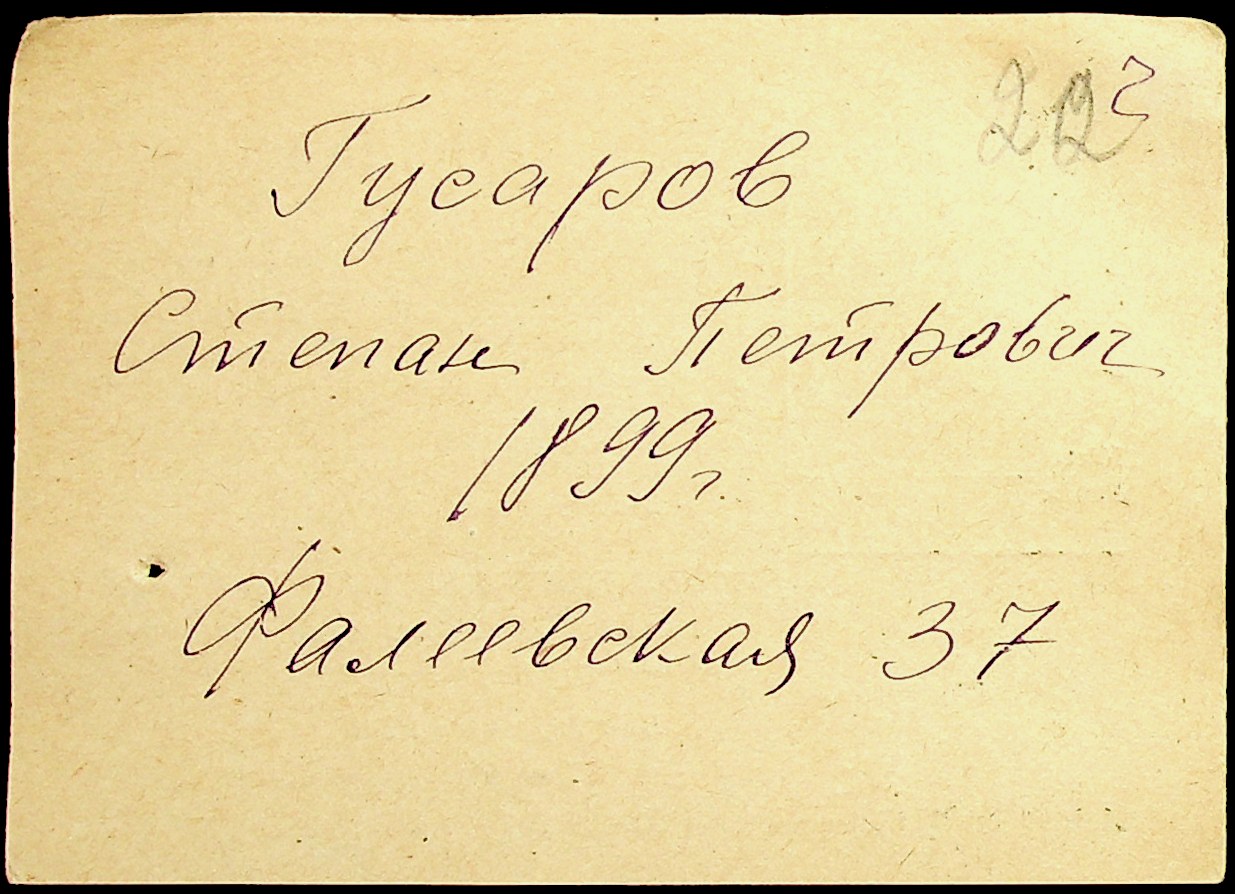 Гусаров
Степан Петрович
1899г.
Фалеевская 37